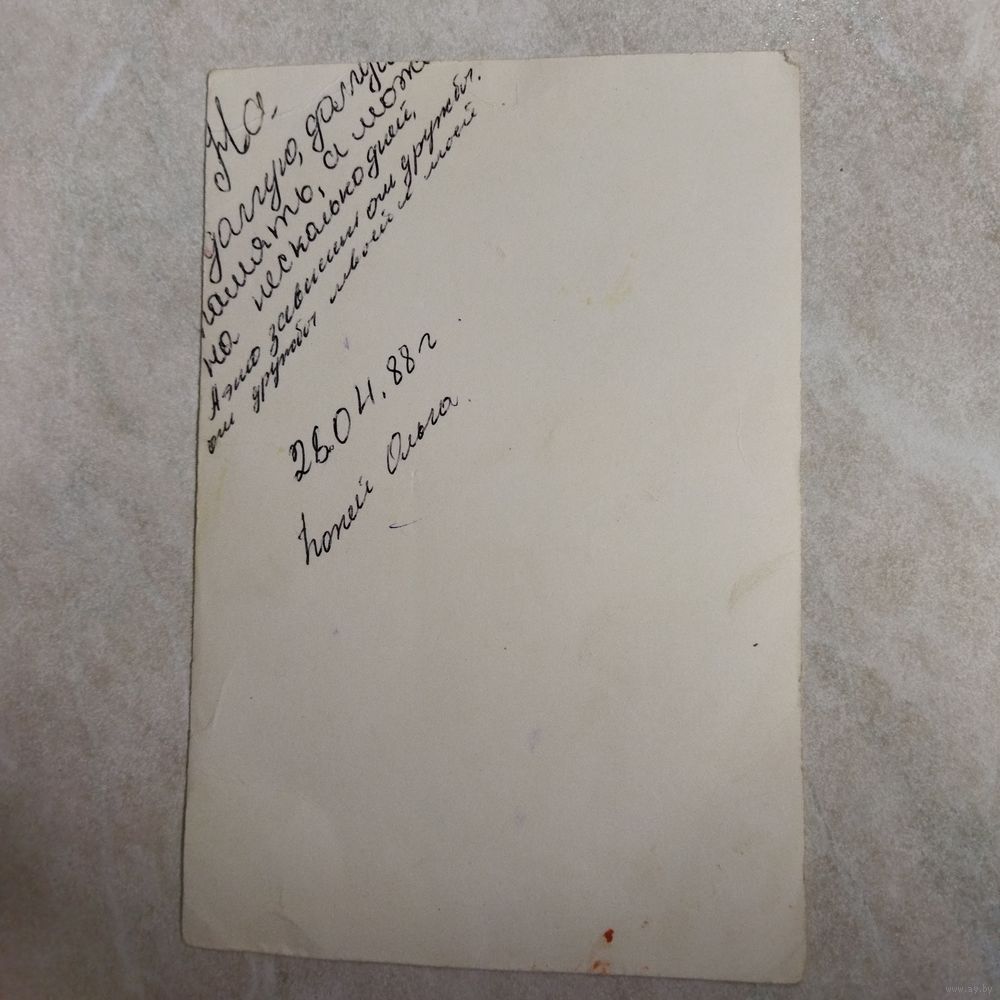 На
долгую, долгую
память, а може
на несколько дней,
А это зависит от дружбы,
от дружбы твоей и моей
28.04.88 г
Копей Ольга.
www.ay.by